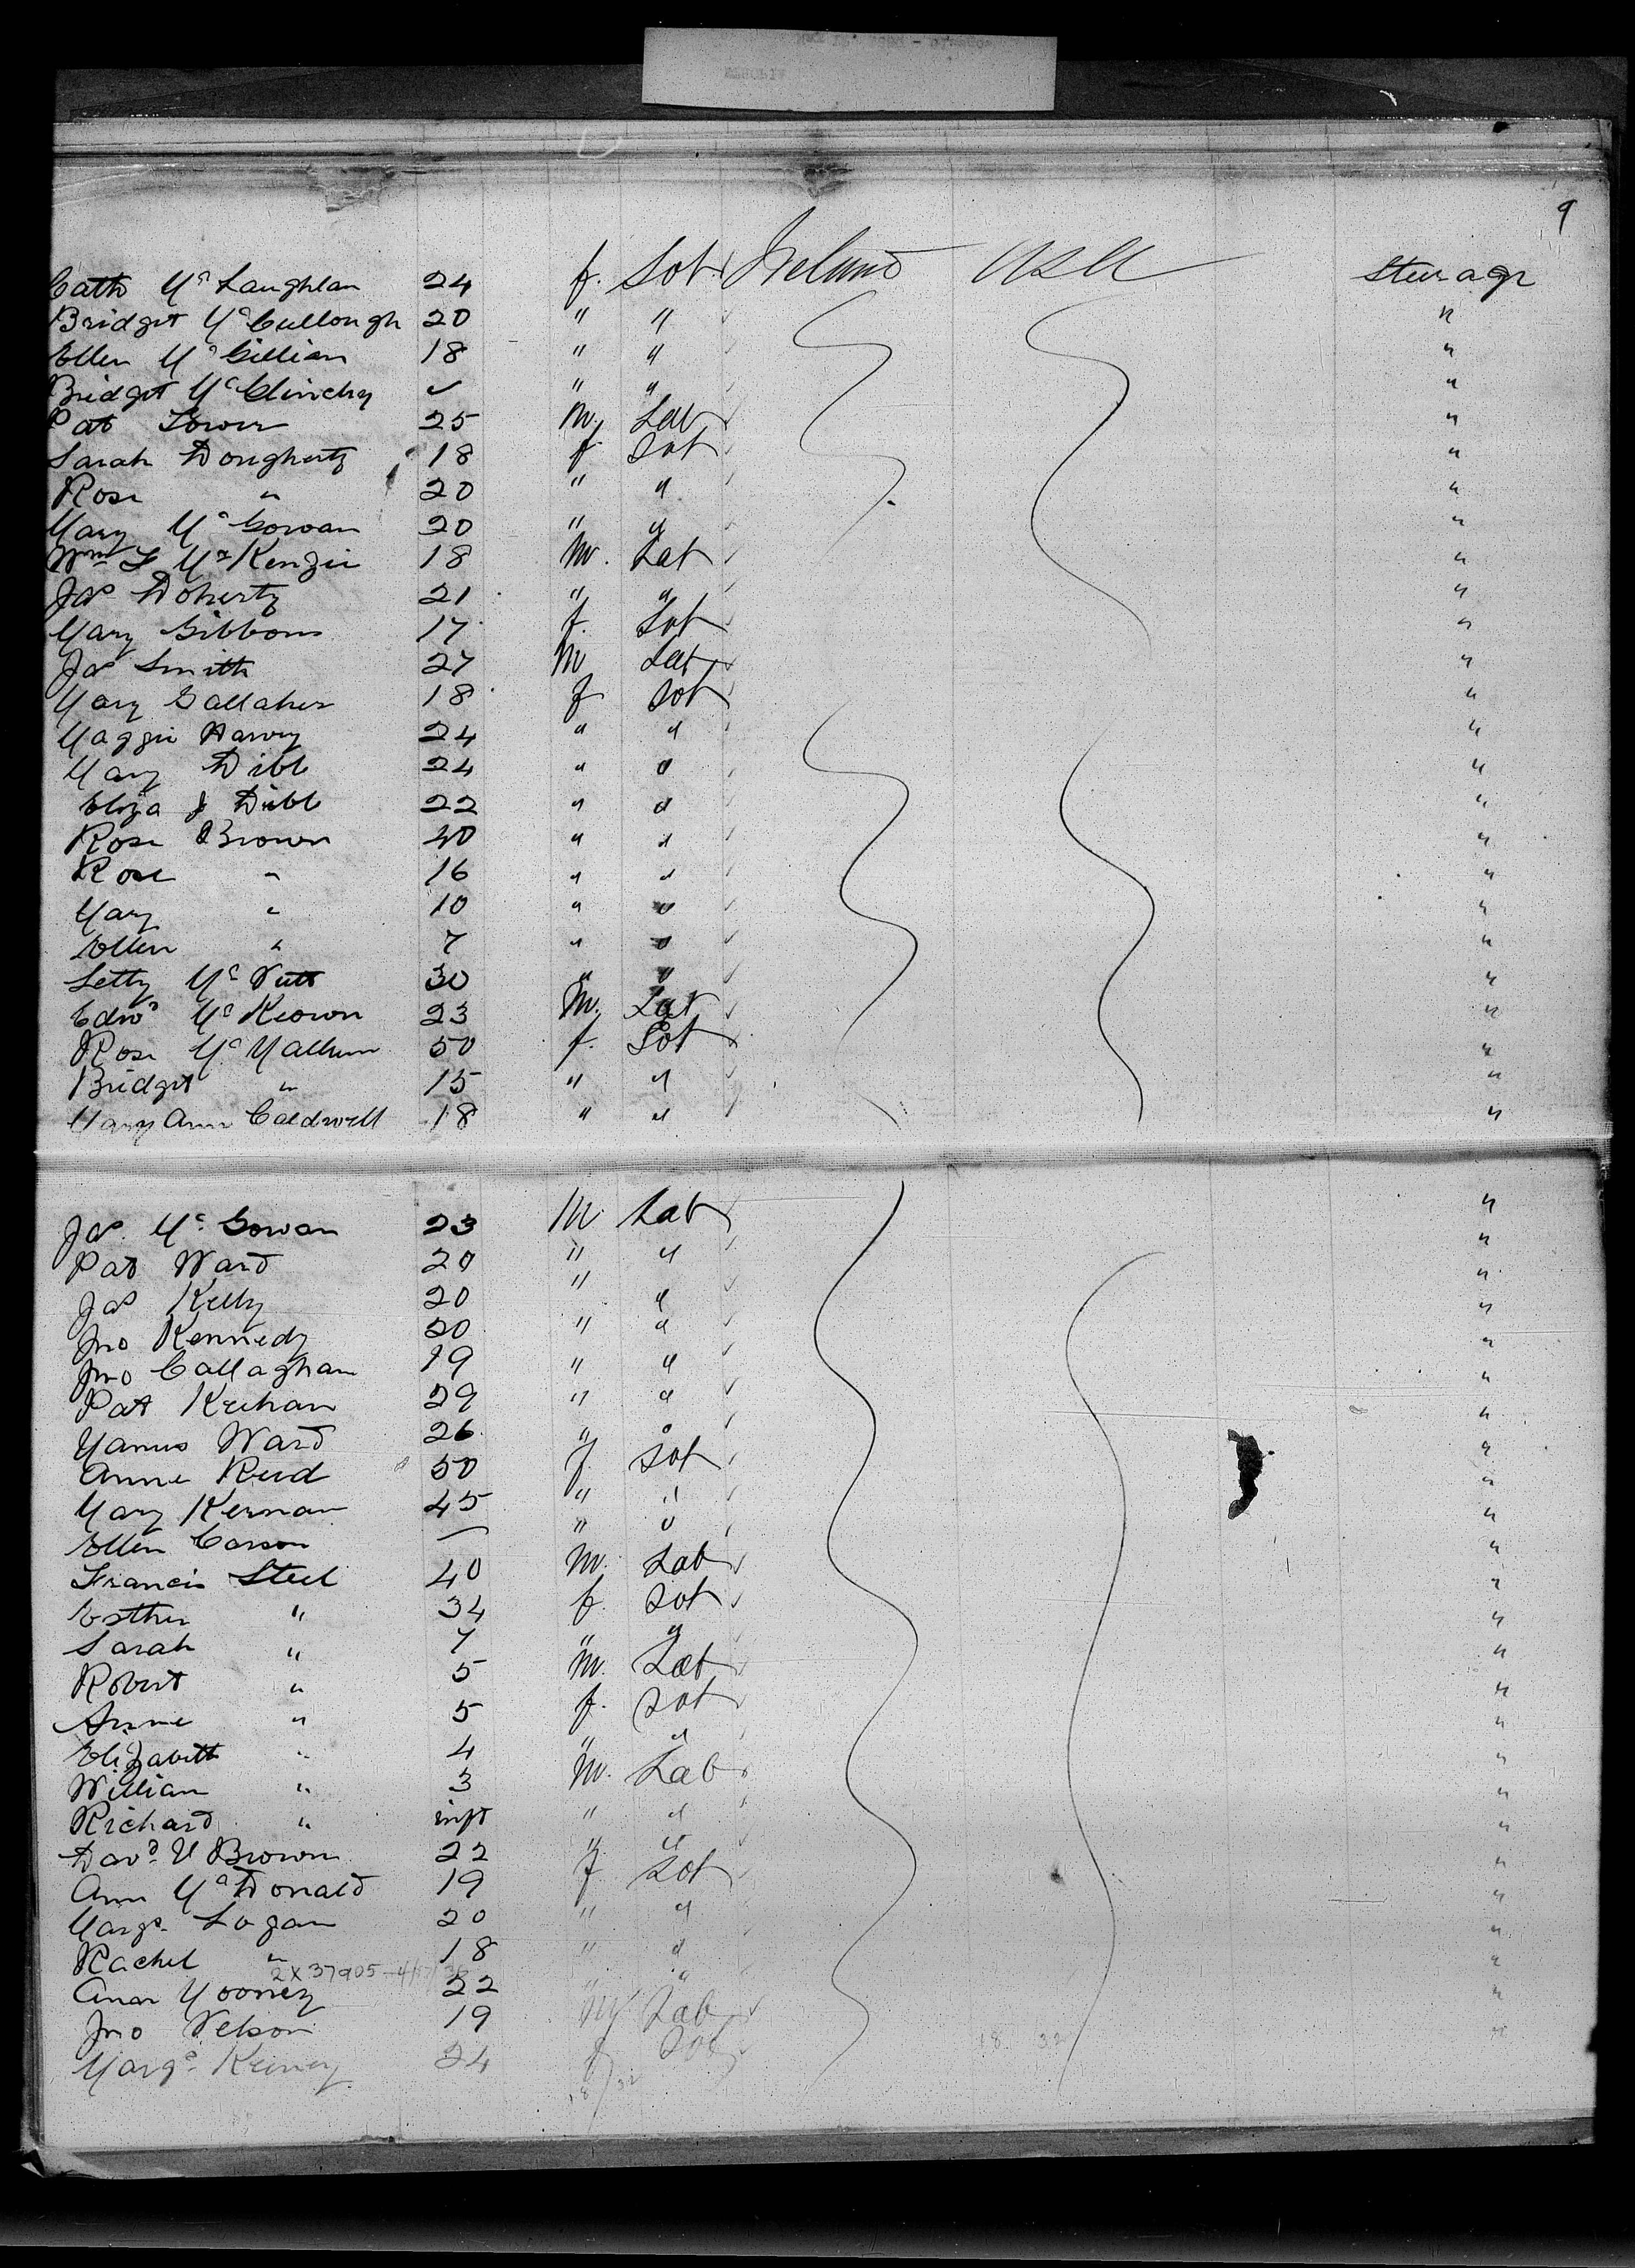 9
Cath Mc Laughlan 24 f. Sot Ireland USA Steerage
Bridget Mc Cullough 20 " " "
Ellen Mc Gillian 18 " " "
Bridget Mc Clinchy " " "
Pat 25 m. Lab "
Sarah Dougherty 18 f Sot "
Rose " 20 " " "
Mary Mc Gowan 20 " " "
Wm Mc Kenzie 18 m. Lab "
Jas Doherty 21 " " "
Mary Gibbons 17 f. Sot "
Jas Smith 27 m Lab "
Mary Gallaher 18 f Sot "
Maggie Harvey 24 " " "
Mary Dibb 24 " " "
Eliza J Dibb 22 " " "
Rose Brown 40 " " "
Rose " 16 " " "
Mary " 10 " " "
Ellen " 7 " " "
Letty Mc Nutt 30 " " "
Edwd Mc Keown 23 m. Lab "
Rose Mc 50 f. Sot "
Bridget " 15 " " "
Mary Ann Caldwell 18 " " "
Jas. Mc Gowan 23 m Lab "
Pat Ward 20 " " "
Jas Kelly 20 " " "
Jno Kennedy 20 " " "
Jno Callaghan 19 " " "
Pat Keehan 29 " " "
Manus Ward 26 " " "
Anne Reid 50 f. Sot "
Mary Kernan 45 " " "
Ellen Carson — " " "
Francis Steel 40 m. Lab "
Esther " 34 f. Sot "
Sarah " 7 " " "
Robert " 5 m. Lab "
Anne " 5 f. Sot "
Elizabeth " 4 " " "
William " 3 m. Lab "
Richard " inft " " "
Davd M Brown 22 " " "
Ann Mc Donald 19 f Sot "
Margt Logan 20 " " "
Rachel " 18 " " "
2X37905
Ann Mooney 22 " " "
Jno Nelson 19 m Lab "
Margt 24 f Sot "
18 32
18/32